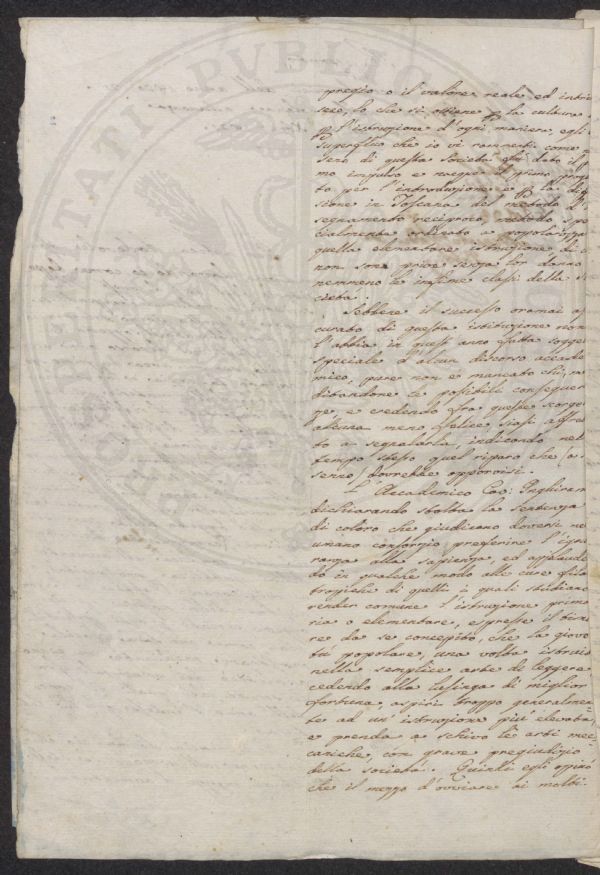 PROSPERITATI PUBLICAE
pregio o il valore reale ed intrin
seco, lo che si ottiene p la cultura
p l'istruzione d'ogni maniera, egli
superfluo che io vi rammenti come
seno di questa Società fu dato il
mo impulso e nacque il primo proget
to per l'introduzione e p la
sione in Toscana del metodo d'
segnamento reciproco, metodo spe
cialmente ordinato a popolarizza
quella elementare istruzione di c
non sono prive senza lor danno
nemmeno le infime classi della s
cietà.
Sebbene il successo oramai as
curato di questa istituzione non
l'abbia in quest'anno fatta sogge
speciale d'alcun discorso accade
mico, pure non è mancato chi, me
ditandone le possibili conseguen
ze, e credendo fra queste scorger
alcuna meno felice, siasi affret
to a segnalarla, indicando nel
tempo stesso quel riparo che (a s
senno) dovrebbe opporvisi.
L'Accademico Cav: Inghiram
dichiarando stolta la sentenza
di coloro che giudicano doversi nel
umano consorzio preferire l'igno
ranza alla sapienza, ed applauden
do in qualche modo alle cure filan
tropiche di quelli i quali studiano
render comune l'istruzione prima
ria o elementare, espresse il timo
re da se concepito, che la gioven
tù popolare, una volta istruita
nella semplice arte di leggere
cedendo alla lusinga di miglior
fortuna aspiri troppo generalmen=
te ad un'istruzione più elevata,
e prenda a schivo le arti mec
caniche, con grave pregiudizio
della società. Quindi egli opinò
che il mezzo d'ovviare ai molti